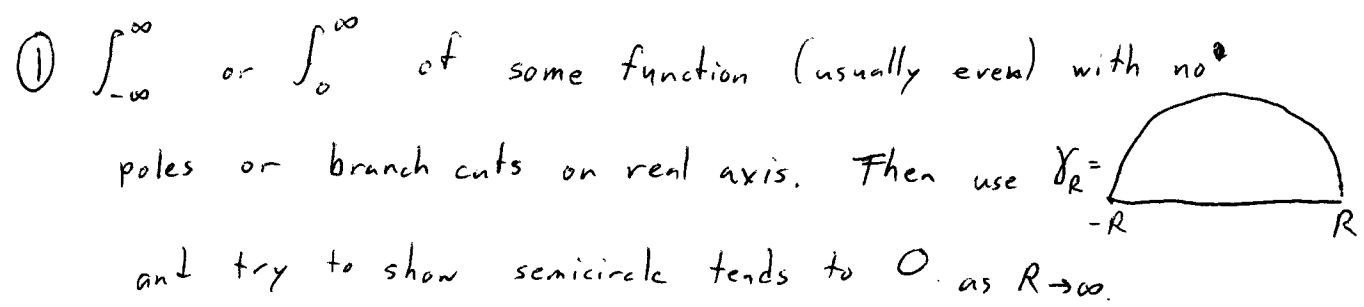 ① ∫_{-∞}^{∞} or ∫_0^{∞} of some function (usually even) with no
poles or branch cuts on real axis. Then use γ_R =
-R R
and try to show semicircle tends to 0 as R→∞.